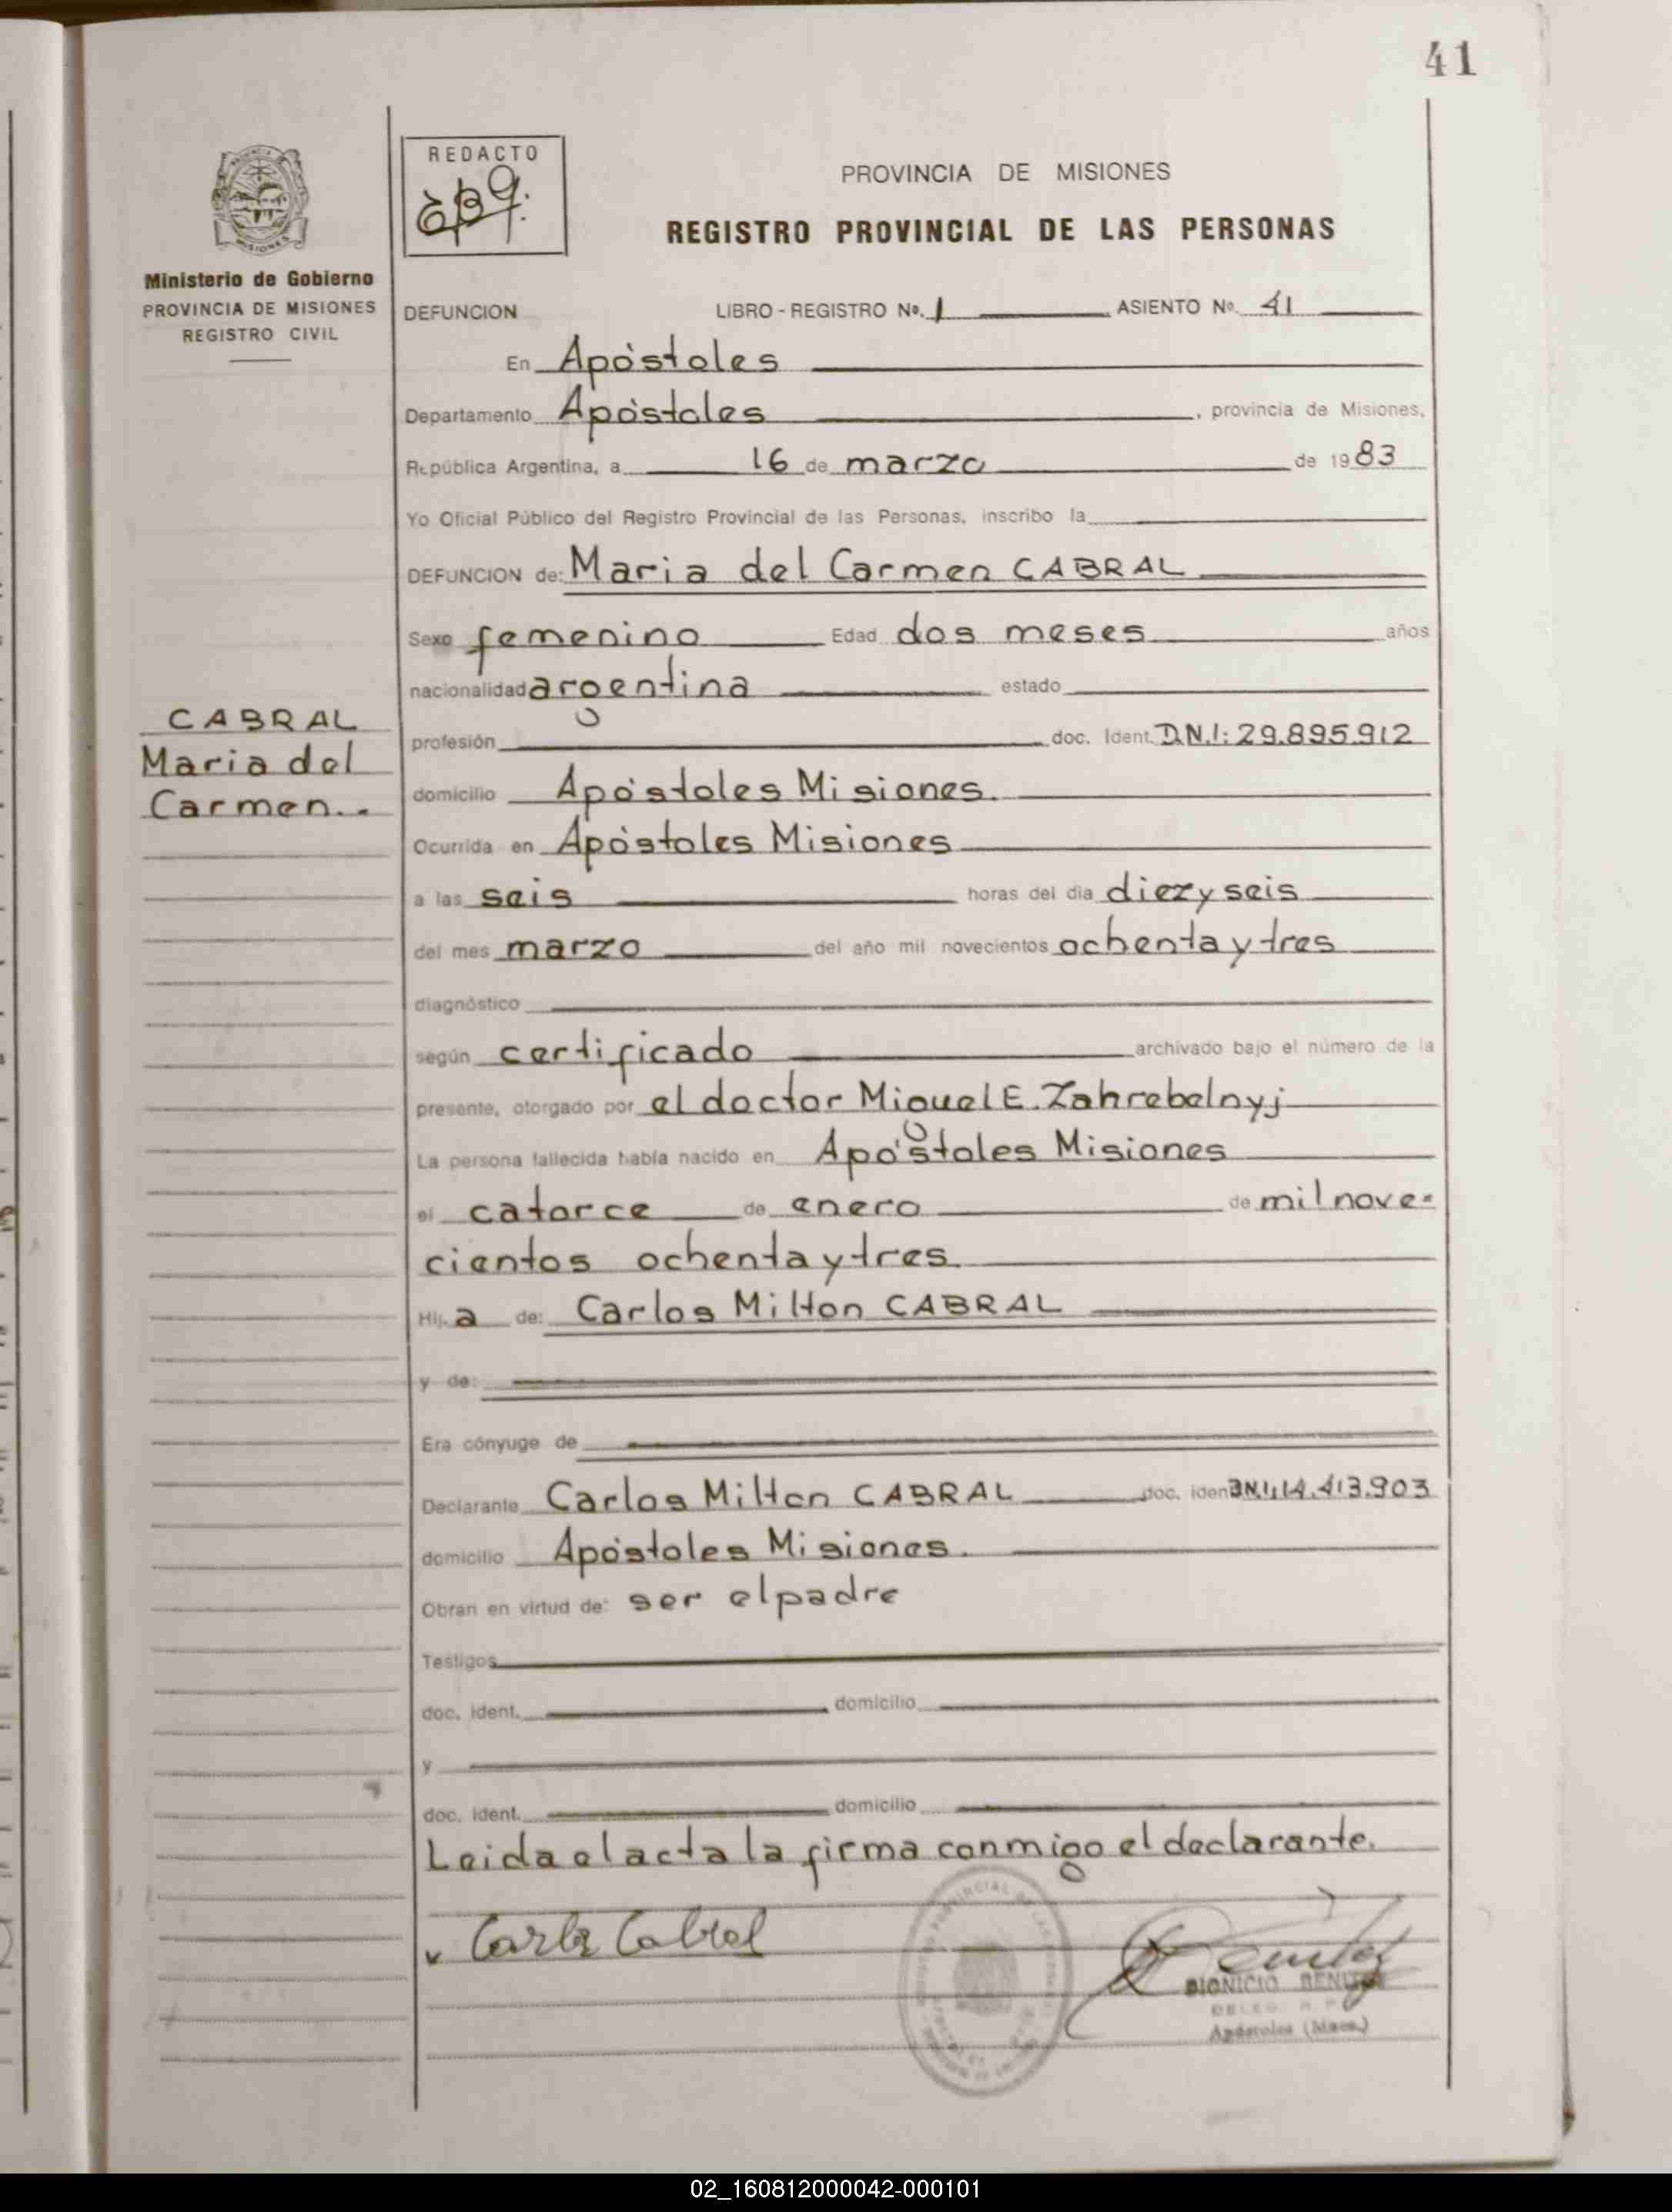 41
REDACTO
PROVINCIA DE MISIONES
REGISTRO PROVINCIAL DE LAS PERSONAS
Ministerio de Gobierno
PROVINCIA DE MISIONES
REGISTRO CIVIL
DEFUNCION LIBRO - REGISTRO No. 1 ASIENTO No. 41
En Apóstoles
Departamento Apóstoles, provincia de Misiones,
República Argentina, a 16 de marzo de 1983
Yo Oficial Público del Registro Provincial de las Personas, inscribo la
DEFUNCION de: Maria del Carmen CABRAL
Sexo femenino Edad dos meses años
nacionalidad argentina estado
CABRAL
Maria del
Carmen.-
profesión doc. Ident. D.N.I: 29.895.912
domicilio Apóstoles Misiones.
Ocurrida en Apóstoles Misiones
a las seis horas del día diez y seis
del mes marzo del año mil novecientos ochenta y tres
diagnóstico
según certificado archivado bajo el número de la
presente, otorgado por el doctor Miguel E. Zahrebelnyj
La persona fallecida había nacido en Apóstoles Misiones
el catorce de enero de mil nove=
cientos ochenta y tres.
Hij a de: Carlos Milton CABRAL
y de:
Era cónyuge de
Declarante Carlos Milton CABRAL doc. iden D.N.I. 14.413.903
domicilio Apóstoles Misiones.
Obran en virtud de: ser el padre
Testigos
doc. ident. domicilio
y
doc. ident. domicilio
Leida el acta la firma conmigo el declarante.
Carlos Cabral
DIONICIO BENITEZ
DELEG. R. P.
Apóstoles (Mnes.)
02_160812000042-000101